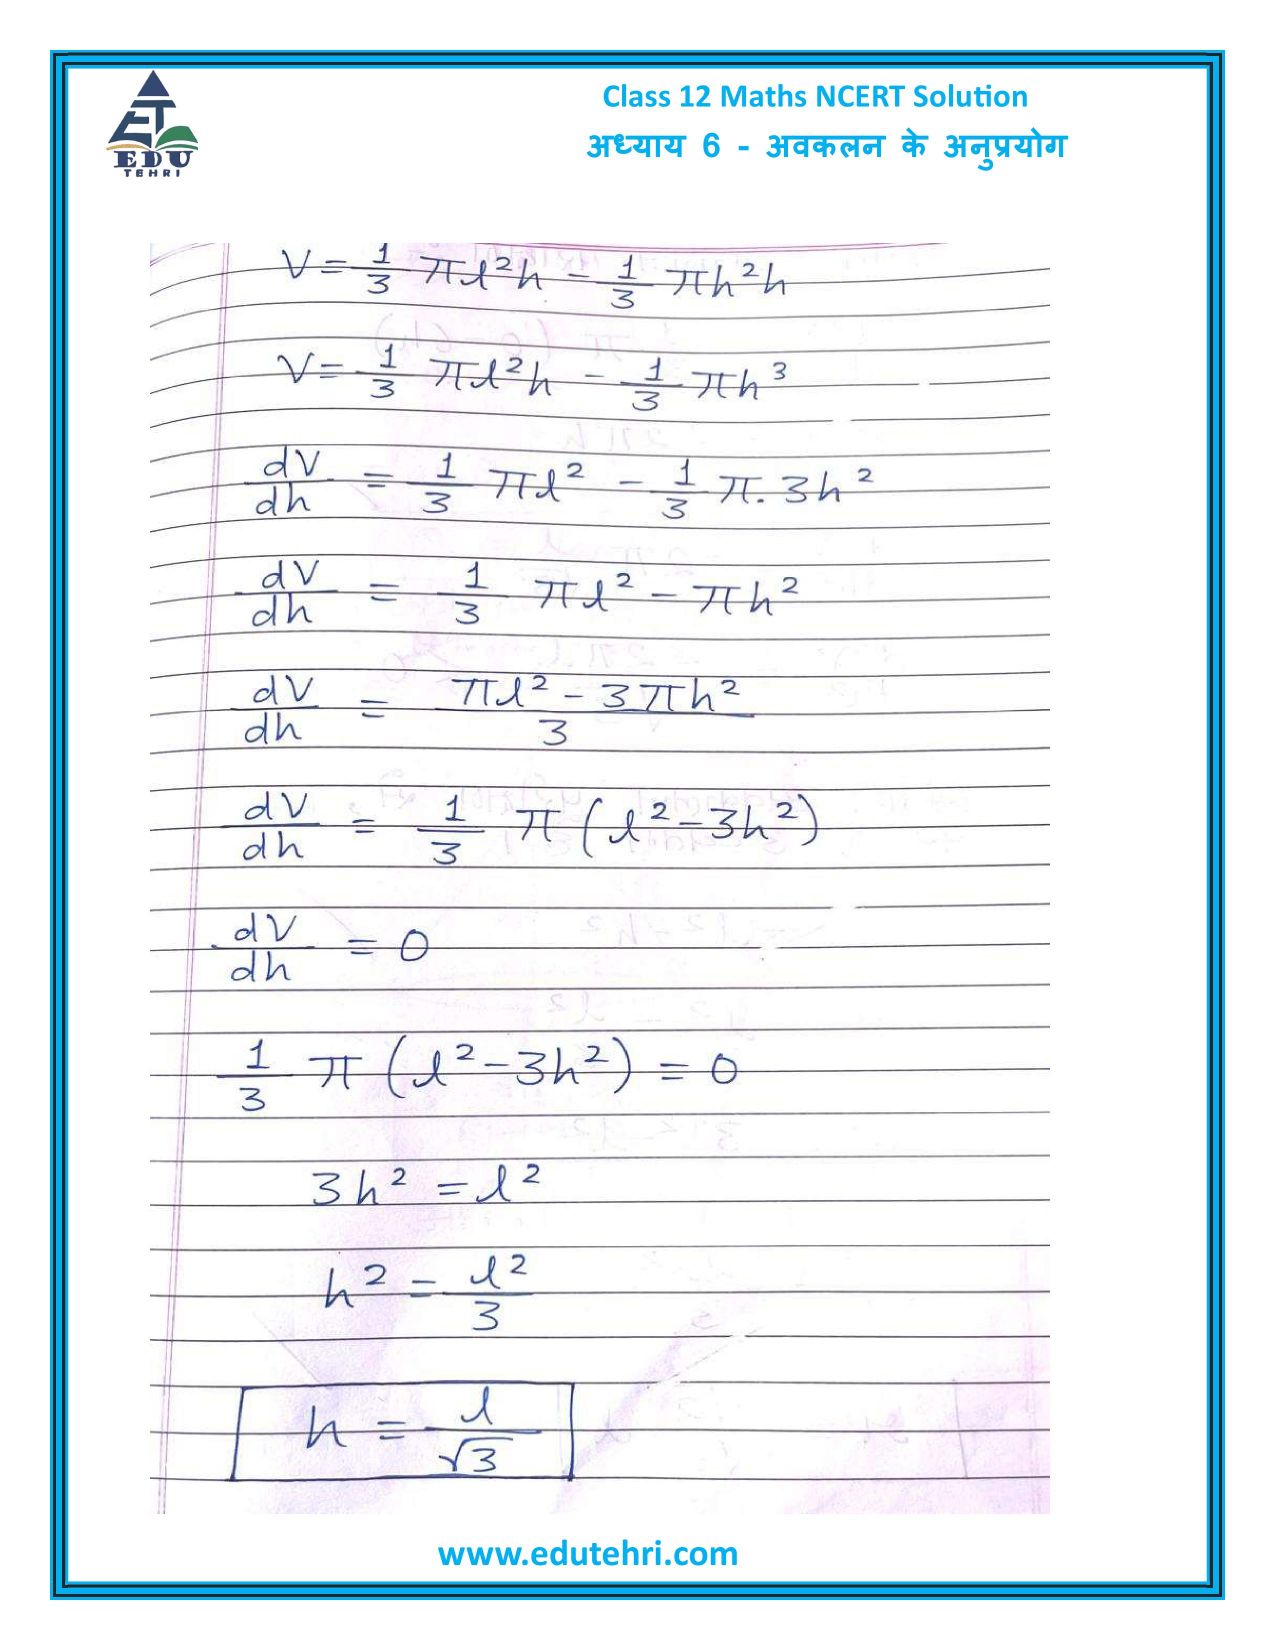 EDU
TEHRI
Class 12 Maths NCERT Solution
अध्याय 6 - अवकलन के अनुप्रयोग
V = 1/3 πl²h - 1/3 πh²h
V = 1/3 πl²h - 1/3 πh³
dV/dh = 1/3 πl² - 1/3 π. 3h²
dV/dh = 1/3 πl² - πh²
dV/dh = πl² - 3πh² / 3
dV/dh = 1/3 π (l² - 3h²)
dV/dh = 0
1/3 π (l² - 3h²) = 0
3h² = l²
h² = l²/3
h = l/√3
www.edutehri.com